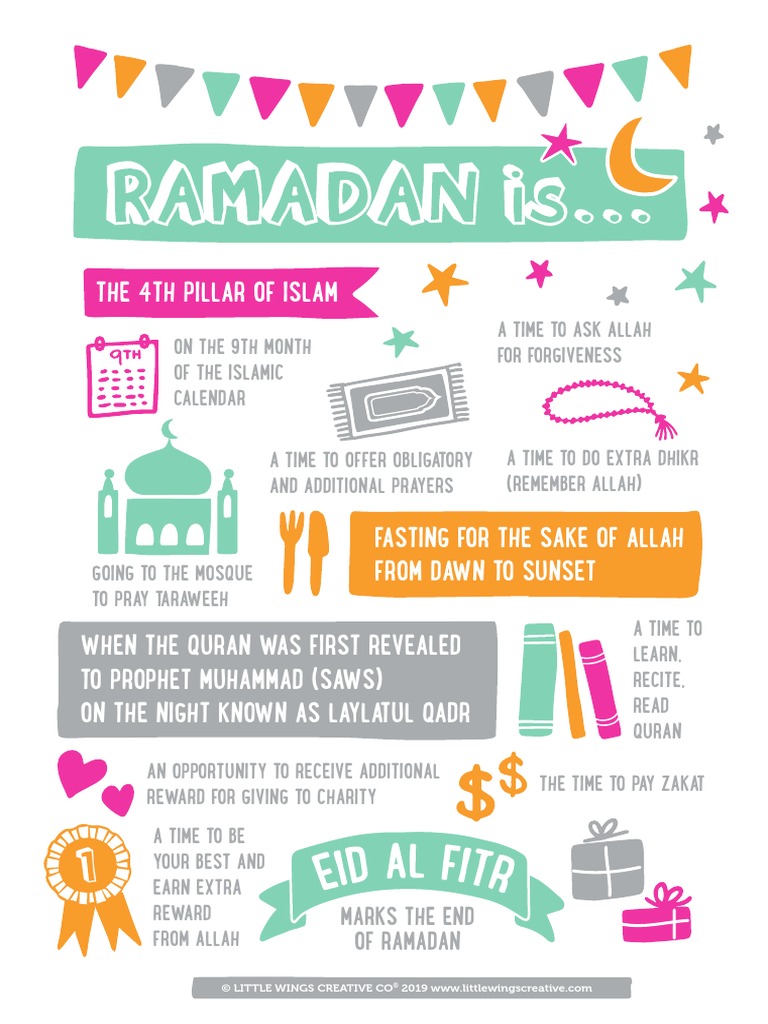 RAMADAN is...
THE 4TH PILLAR OF ISLAM
9TH
ON THE 9TH MONTH
OF THE ISLAMIC
CALENDAR
A TIME TO ASK ALLAH
FOR FORGIVENESS
A TIME TO OFFER OBLIGATORY
AND ADDITIONAL PRAYERS
A TIME TO DO EXTRA DHIKR
(REMEMBER ALLAH)
GOING TO THE MOSQUE
TO PRAY TARAWEEH
FASTING FOR THE SAKE OF ALLAH
FROM DAWN TO SUNSET
WHEN THE QURAN WAS FIRST REVEALED
TO PROPHET MUHAMMAD (SAWS)
ON THE NIGHT KNOWN AS LAYLATUL QADR
A TIME TO
LEARN,
RECITE,
READ
QURAN
AN OPPORTUNITY TO RECEIVE ADDITIONAL
REWARD FOR GIVING TO CHARITY
$$
THE TIME TO PAY ZAKAT
1
A TIME TO BE
YOUR BEST AND
EARN EXTRA
REWARD
FROM ALLAH
EID AL FITR
MARKS THE END
OF RAMADAN
© LITTLE WINGS CREATIVE CO® 2019 www.littlewingscreative.com